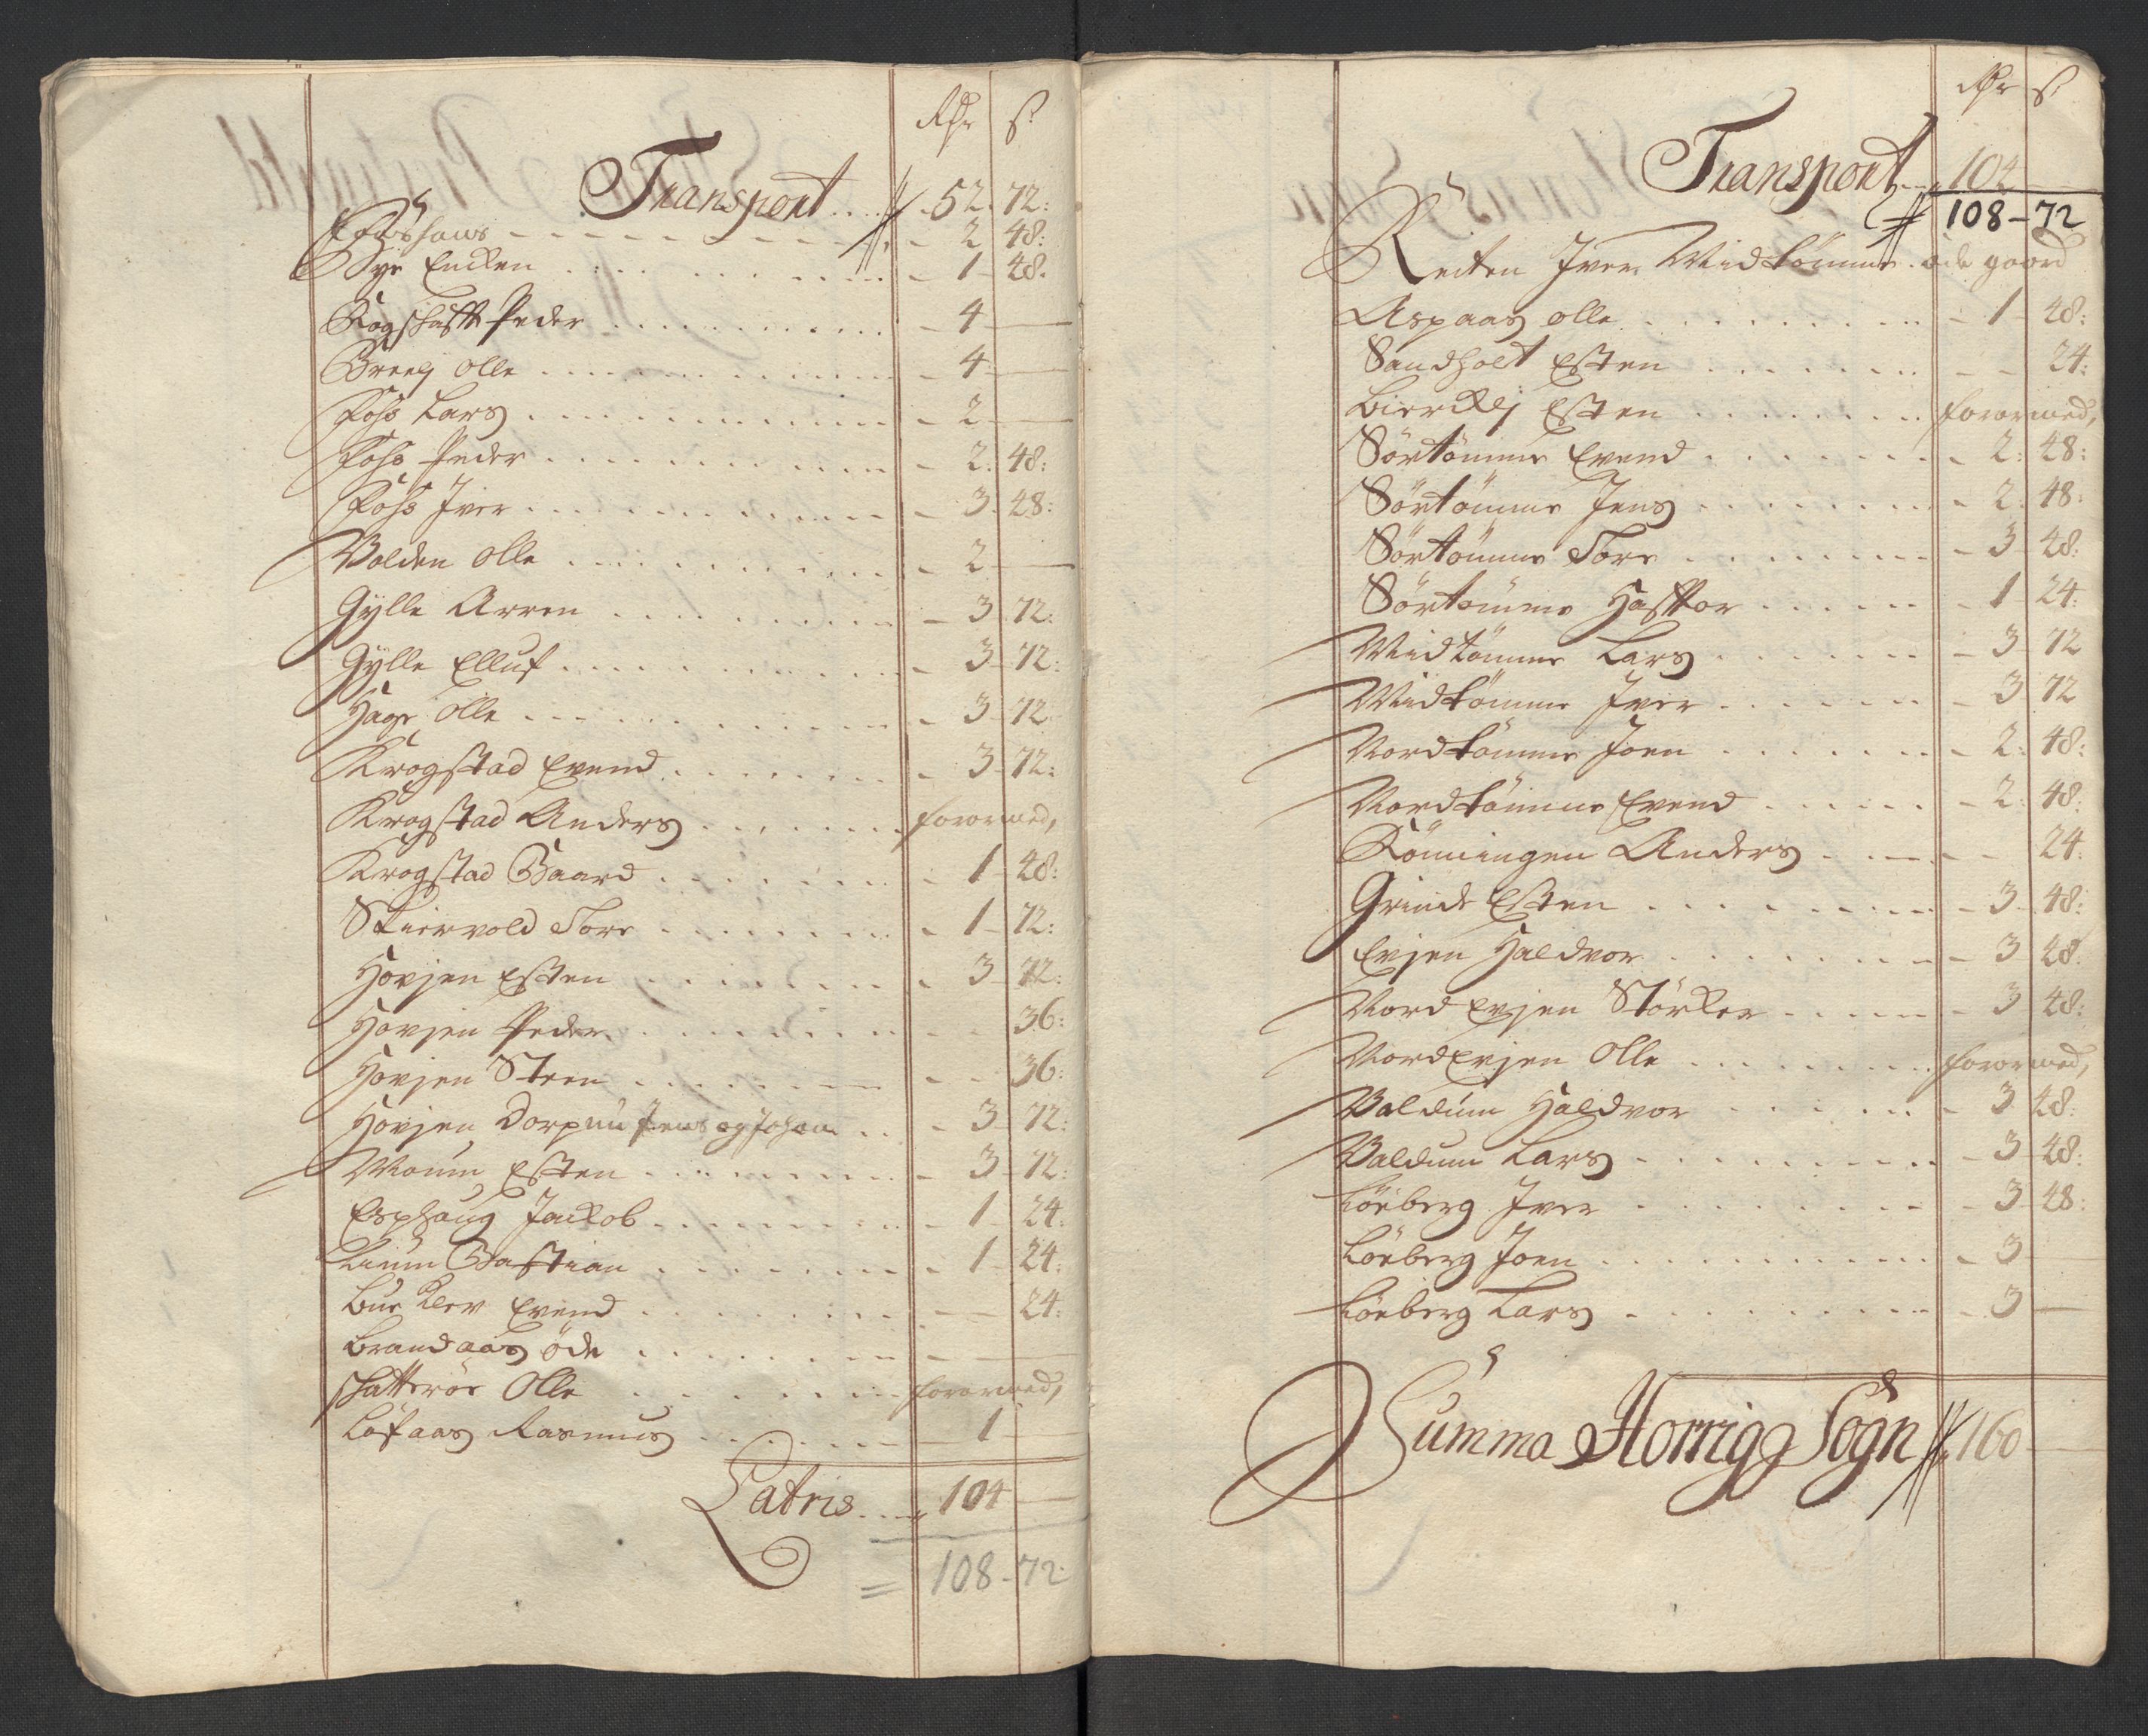 Rdr s
Transport .... 52. 72:
Foshaus - - - 2 48:
Bye Encken . . . 1 48.
Kogshafft Peder . . . 4 —
Breelj Olle . . . 4 —
Fohs Lars . . . 2 —
Fohs Peder . . . 2. 48:
Fohs Iver . . . 3. 48:
Volden Olle . . . 2 —
Gylle Arren . . . 3. 72:
Gylle Elluf . . . 3. 72:
Hage Olle . . . 3. 72.
Krogstad Evend . . . 3. 72:
Krogstad Anders . . . forarmed,
Krogstad Baard . . . 1 48:
Skiervold Tore . . . 1 72:
Hovjen Esten . . . 3 72:
Hovjen Peder . . . 36:
Hovjen Steen . . . 36:
Hovjen Jens og Johan . . . 3 72:
Moum Esten . . . 3 72:
Esphaug Jackob . . . 1 24:
Lium Bastian . . . 1 24:
Bur Klev Evend . . . 24:
Brandaas öde . . .
Skatterøe Olle . . . forarmed,
Løfaas Rasmus . . . 1
Latris .... 104 —
= 108 - 72:
Rdr s
Transport .... 104
108 - 72
Reiten Iver Midtømme. öde gaord
Aspaas Olle . . . 1 48:
Sandholt Esten . . . 24:
Bierklj Esten . . . forarmed,
Sörtömme Evend . . . 2: 48:
Sörtömme Jens . . . 2. 48:
Sörtömme Tore . . . 3 48:
Sörtömme Hafftor . . . 1 24:
Midtömme Lars . . . 3 72
Midtömme Iver . . . 3 72
Nordtömme Joen . . . 2: 48:
Nordtömme Evend . . . 2: 48:
Rönningen Anders . . . 24.
Grinde Esten . . . 3 48:
Evjen Haldvor . . . 3 48.
Nord Evjen Störker . . . 3 48:
Nord Evjen Olle . . . forarmed,
Valdum Haldvor . . . 3 48:
Valdum Lars . . . 3 48:
Löeberg Iver . . . 3 48:
Löeberg Joen . . . 3
Löeberg Lars . . . 3
Summa Horrigs Sogn 160 —